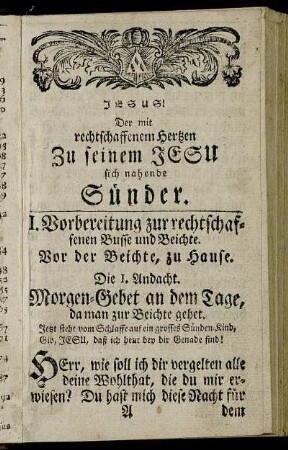 JESUS!
Der mit
rechtschaffenem Hertzen
Zu seinem JESU
sich nahende
Sünder.
I. Vorbereitung zur rechtschaf-
fenen Busse und Beichte.
Vor der Beichte, zu Hause.
Die I. Andacht.
Morgen-Gebet an dem Tage,
da man zur Beichte gehet.
Jetzt steht vom Schlaffe auf ein grosses Sünden-Kind,
Gib, JESU, daß ich heut bey dir Genade find!
HErr, wie soll ich dir vergelten alle
deine Wohlthat, die du mir er-
wiesen? Du hast mich diese Nacht für
A dem